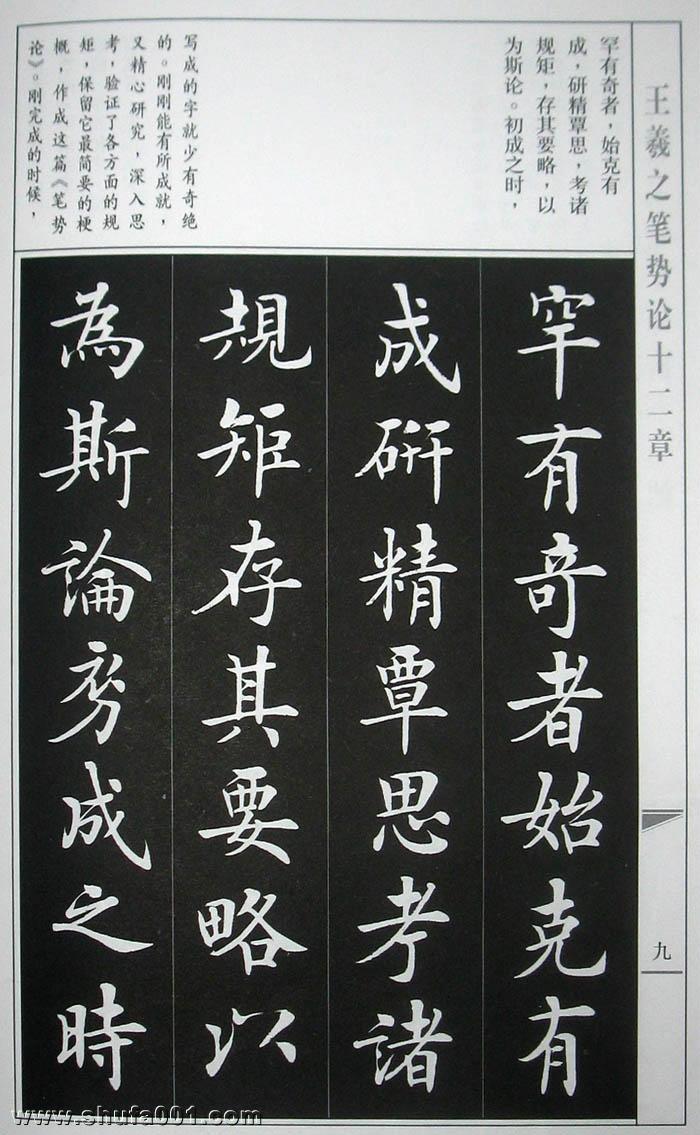 王羲之笔势论十二章
九
罕有奇者，始克有
成，研精覃思，考诸
规矩，存其要略，以
为斯论。初成之时，
写成的字就少有奇绝
的。刚刚能有所成就，
又精心研究，深入思
考，验证了各方面的规
矩，保留它最简要的梗
概，作成这篇《笔势
论》。刚完成的时候，
罕有奇者始克有
成研精覃思考諸
規矩存其要略以
為斯論初成之時
www.shufa001.com